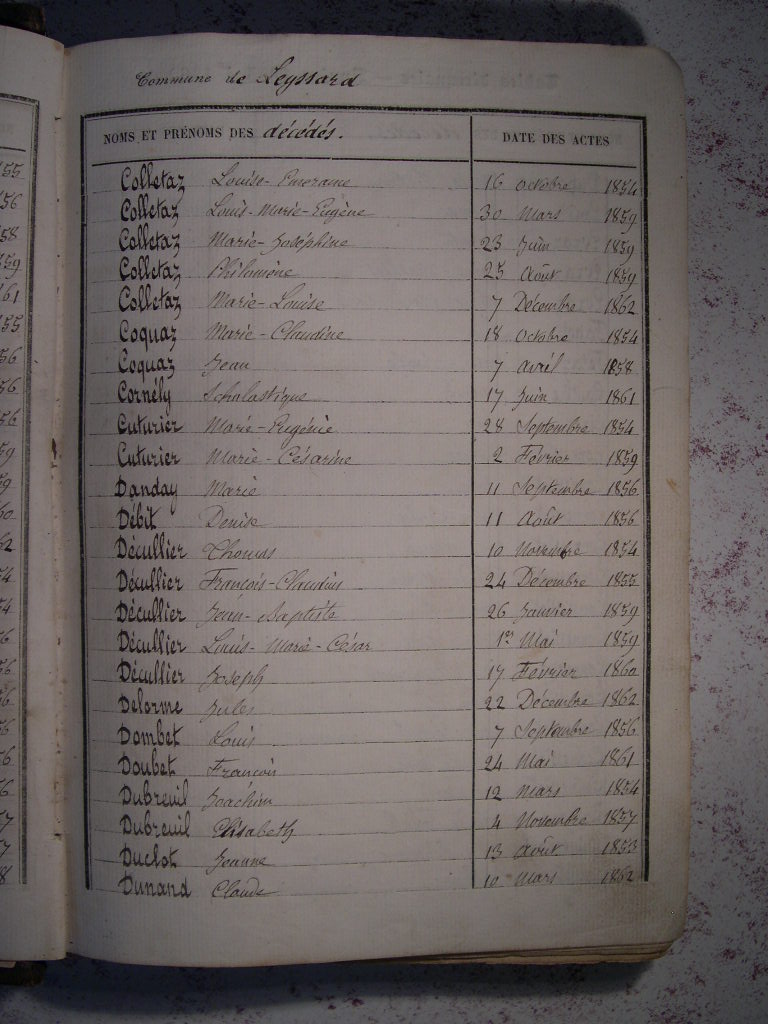 Commune de Leyssard
NOMS ET PRÉNOMS DES décédés. DATE DES ACTES
Colletaz Louise-Emerance 16 octobre 1854
Colletaz Louis-Marie-Eugène 30 Mars 1859
Colletaz Marie-Joséphine 23 Juin 1859
Colletaz Philomène 25 Août 1859
Colletaz Marie-Louise 7 Décembre 1862
Coquaz Marie-Claudine 18 octobre 1854
Coquaz Jean 7 avril 1858
Cornély Scholastique 17 Juin 1861
Cuturier Marie-Eugénie 28 Septembre 1854
Cuturier Marie-Césarine 2 Février 1859
Danday Marie 11 Septembre 1856
Débit Denise 11 Août 1856
Décullier Thomas 10 Novembre 1854
Décullier François-Claudius 24 Décembre 1855
Décullier Jean-Baptiste 26 Janvier 1859
Décullier Louis-Marie-César 1er Mai 1859
Décullier Joseph 17 Février 1860
Delorme Jules 22 Décembre 1862
Dombet Louis 7 Septembre 1856
Doubet François 24 Mai 1861
Dubreuil Joachim 12 Mars 1854
Dubreuil Elisabeth 4 Novembre 1857
Duclot Jeanne 13 Août 1853
Dunand Claude 10 Mars 1862